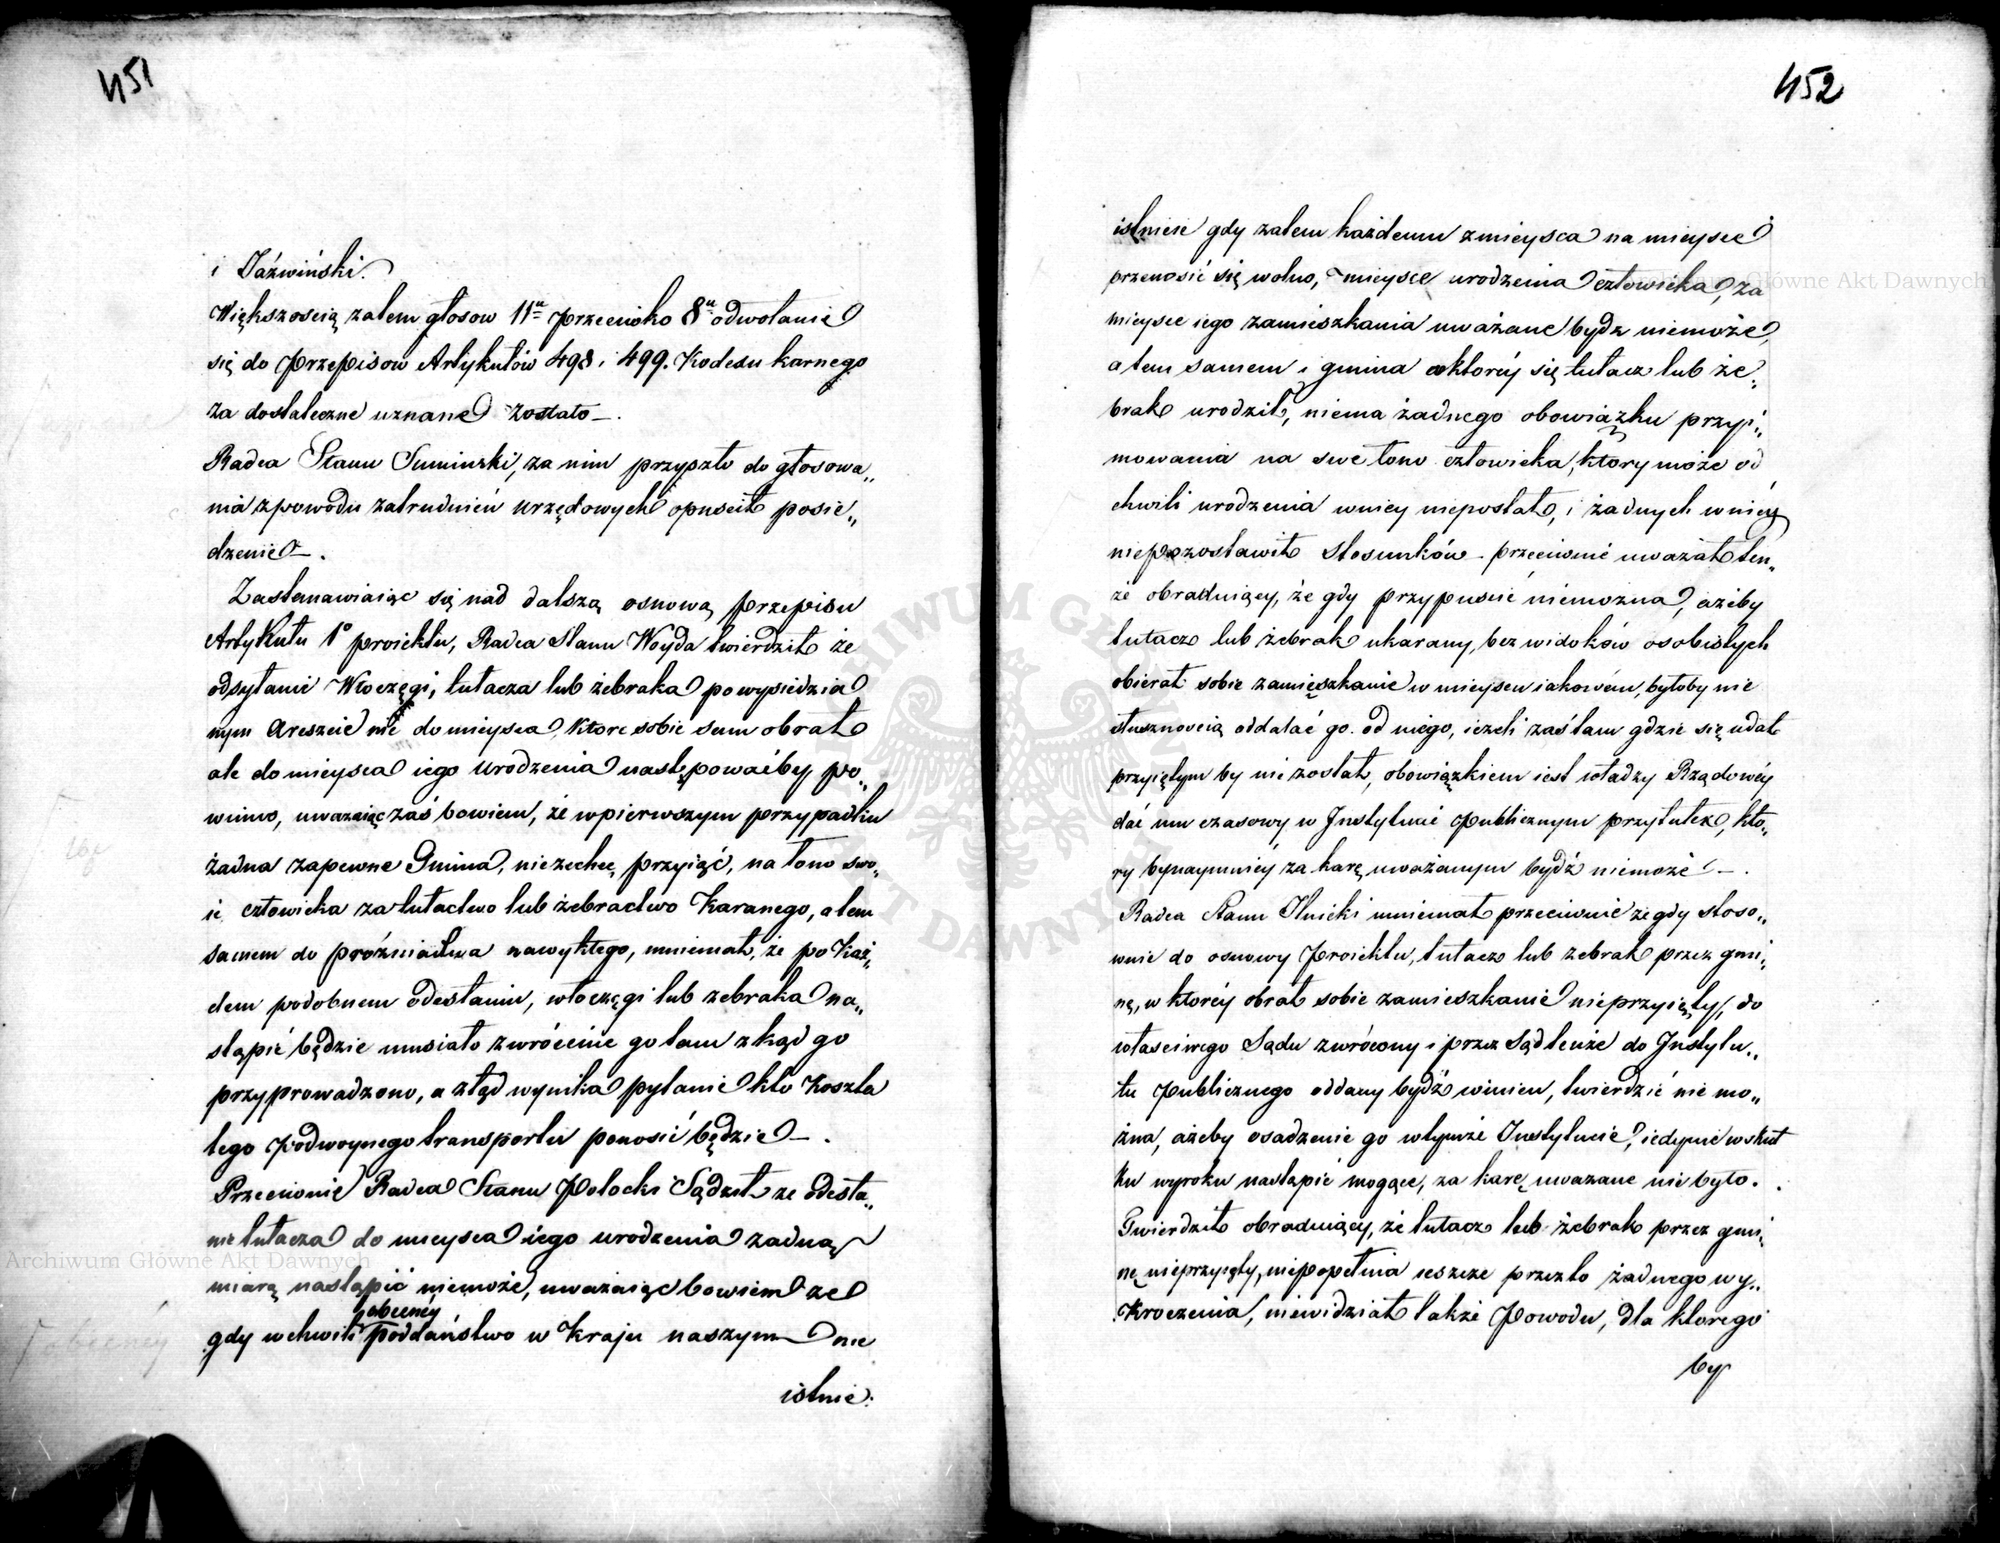 451
i Jaźwiński.
Większoscią zatem głosow 11u przeciwko 8u odwołanie
się do przepisow Artykułów 498 i 499. Kodesu karnego
za dostateczne uznane zostało.
Radca Stanu Suminski, za nim przyszło do głosowa„
nia z powodu zatrudnień urzędowych opuscił posie„
dzenie.
Zastanawiaiąc się nad dalszą osnową przepisu
Artykułu 1o proiektu, Radca Stanu Woyda twierdził że
odsyłanie Włoczęgi, tułacza lub żebraka po wysiedzia
nym areszcie nie do mieysca, ktore sobie sam obrał
ale do mieysca iego urodzenia następowaćby po„
winno, uważaiąc zaś bowiem, że w pierwszym przypadku
żadna zapewne Gmina, niezechce przyiąć, na łono swo„
ie człowieka za tułactwo lub żebractwo Karanego, a tem
samem do próżniactwa nawykłego, mniemał, że po Każ„
dem podobnem odesłaniu, włoczęgi lub żebraka na„
stąpić będzie musiało zwrócenie go tam zkąd go
przyprowadzono, a ztąd wynika pytanie kto Koszta
tego podwoynego transportu ponosić będzie.
Przeciwnie Radca Stanu Potocki Sądził że odesła„
nie tułacza do mieysca iego urodzenia żadną
miarą nastąpić niemoże, uważaiąc bowiem że
obecney
gdy w chwili poddaństwo w Kraju naszym nie
istnie.
452
istnieie gdy zatem każdemu z mieysca na mieysce
przenosić się wolno, mieysce urodzenia człowieka, za
mieysce iego zamieszkania uważane bydź niemoże,
a tem samem i gmina w ktorey się tułacz lub że„
brak urodził, niema żadnego obowiązku przyi„
mowania na swe łono człowieka, ktory może od
chwili urodzenia w niey niepostał, i żadnych w niey
niepozostawił stosunków przeciwnie uważał ten„
że obraduiący, że gdy przypuscić niemożna, ażeby
tułacz lub żebrak ukarany, bez widoków osobistych
obierał sobie zamięszkanie w mieyscu iakowém, byłoby nie
słusznoscią oddalać go od niego, ieżeli zaś tam gdzie się udał
przyiętym by nie został, obowiązkiem iest władzy Rządowéy
dać mu czasowy w Instytucie publicznym przytułek, kto„
ry bynaymniéy za karę uważanym bydź niemoże.
Radca Stanu Ilnicki mniemał przeciwnie że gdy stoso„
wnie do osnowy proiektu, tułacz lub żebrak przez gmi„
nę, w ktoréy obrał sobie zamieszkanie nieprzyięty, do
własciwego Sądu zwrócony i przez Sąd tenże do Instytu„
tu publicznego oddany bydź winien, twierdzić nie mo„
żna, ażeby osadzenie go w tymże Instytucie, iedynie w skut
ku wyroku nastąpić mogące, za karę uważane nie było.
Twierdził obraduiący, że tułacz lub żebrak przez gmi„
nę nieprzyięty, niepopełnia ieszcze przezto żadnego wy„
kroczenia, niewidział także powodu, dla ktorego
by
Archiwum Główne Akt Dawnych
Archiwum Główne Akt Dawnych
ARCHIWUM GŁÓWNE AKT DAWNYCH